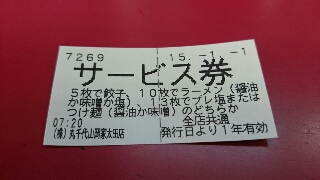 7269 15.-1.-1
サービス券
5枚で餃子、10枚でラーメン(醤油
か味噌か塩)、13枚でプレ塩または
つけ麺(醤油か味噌)のどちらか
07:20 全店共通
(株)丸千代山岡家太田店 発行日より1年有効)